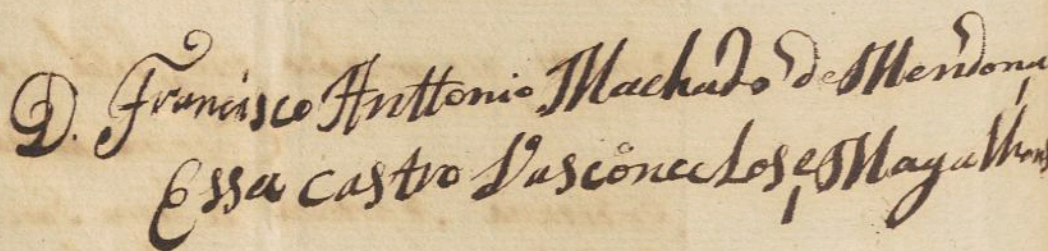 D. Francisco Anttonio Machado de Mendonça
Essa Castro Vasconcelos e Magalhens